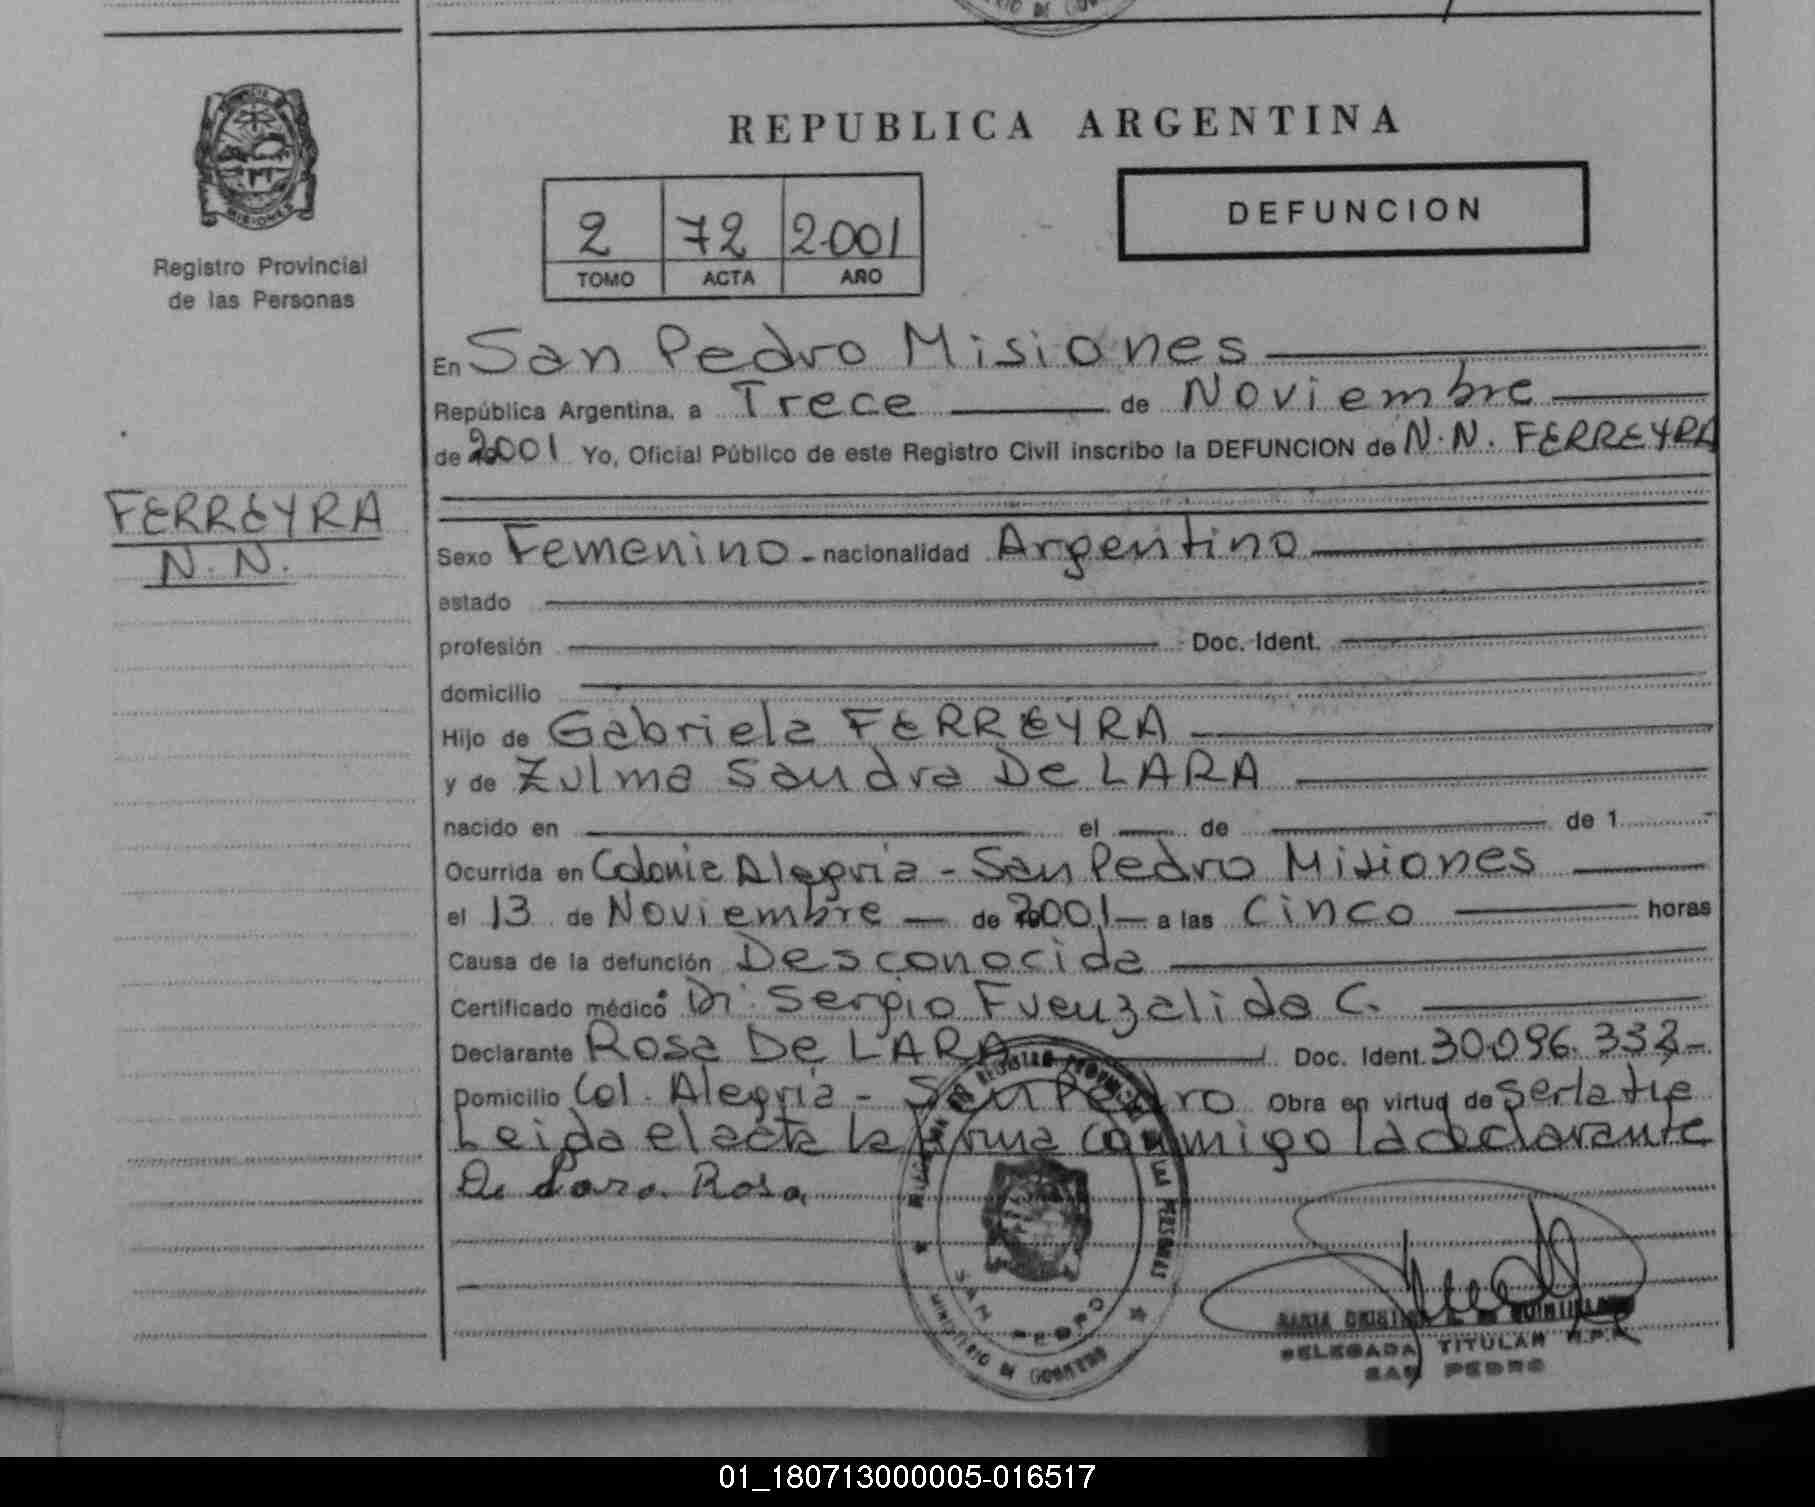 REPUBLICA ARGENTINA
DEFUNCION
2 72 2.001
TOMO ACTA AÑO
MISIONES
Registro Provincial
de las Personas
En San Pedro Misiones
República Argentina, a Trece de Noviembre
de 2001 Yo, Oficial Público de este Registro Civil inscribo la DEFUNCION de N.N. FERREYRA
FERREYRA
N.N.
Sexo Femenino - nacionalidad Argentino
estado
profesión Doc. Ident.
domicilio
Hijo de Gabriela FERREYRA
y de Zulma Sandra De LARA
nacido en el de de 1
Ocurrida en Colonia Alegria - San Pedro Misiones
el 13 de Noviembre de 2001 a las Cinco horas
Causa de la defunción Desconocida
Certificado médico Dr. Sergio Fuenzalida C.
Declarante Rosa De LARA Doc. Ident. 30.096.332-
Domicilio Col. Alegria - San Pedro Obra en virtud de ser la tie
Leida el acta la firma conmigo la declarante
De Lara Rosa
SAN PEDRO
MINISTERIO DE GOBIERNO
DELEGADA TITULAR R.P.P.
SAN PEDRO
01_180713000005-016517